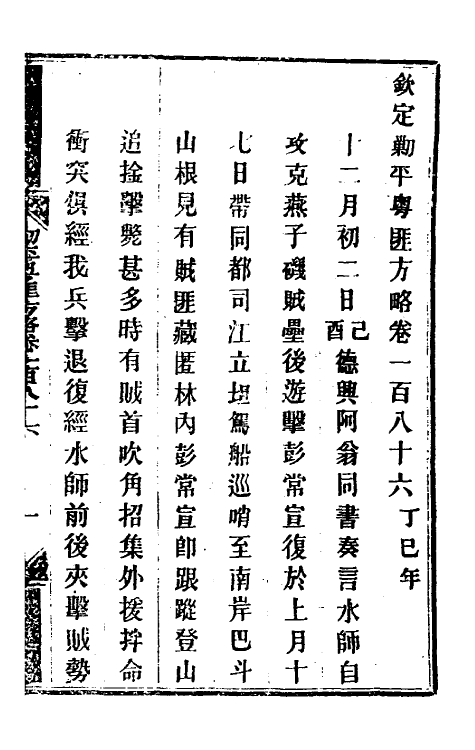 欽定勦平粵匪方略卷一百八十六 丁巳年
十二月初二日己酉德興阿翁同書奏言水師自
攻克燕子磯賊壘後遊擊彭常宣復於上月十
七日帶同都司江立坦駕船巡哨至南岸巴斗
山根見有賊匪藏匿林內彭常宣卽跟蹤登山
追捦擊斃甚多時有賊首吹角招集外援拌命
衝突俱經我兵擊退復經水師前後夾擊賊勢